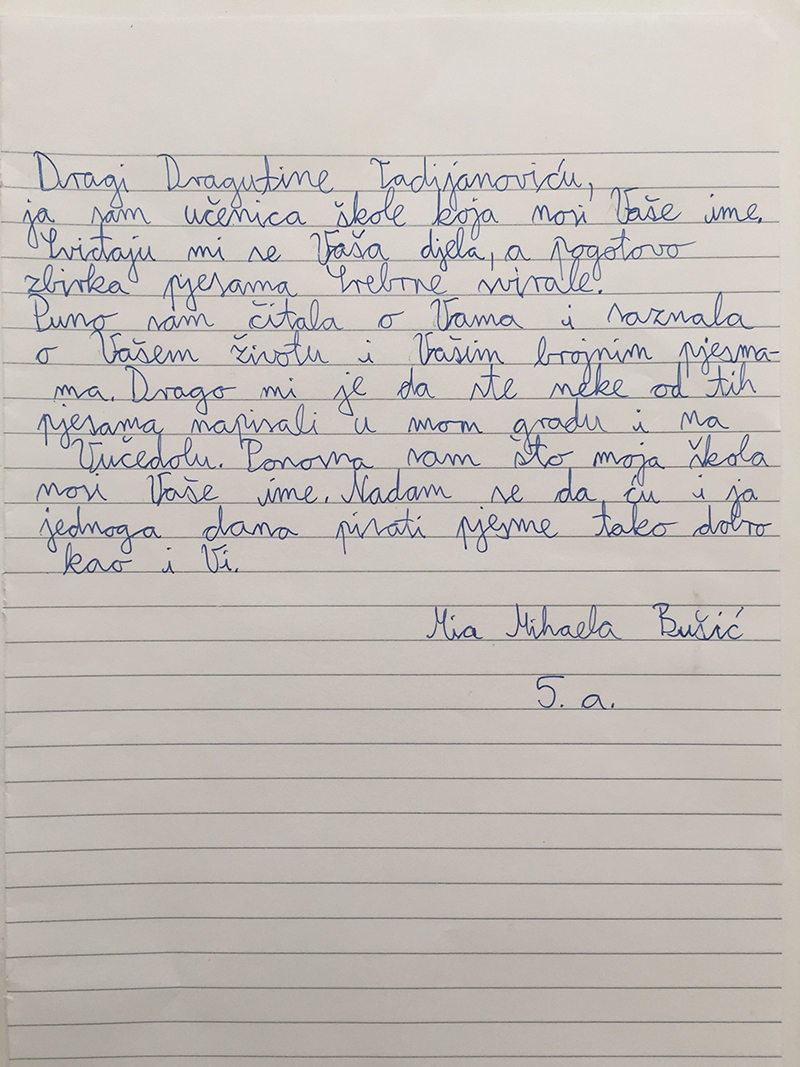 Dragi Dragutine Tadijanoviću,
ja sam učenica škole koja nosi Vaše ime.
Sviđaju mi se Vaša djela, a pogotovo
zbirka pjesama Srebrne svirale.
Puno sam čitala o Vama i saznala
o Vašem životu i Vašim brojnim pjesma-
ma. Drago mi je da ste neke od tih
pjesama napisali u mom gradu i na
Vučedolu. Ponosna sam što moja škola
nosi Vaše ime. Nadam se da ću i ja
jednoga dana pisati pjesme tako dobro
kao i Vi.
Mia Mihaela Bušić
5. a.